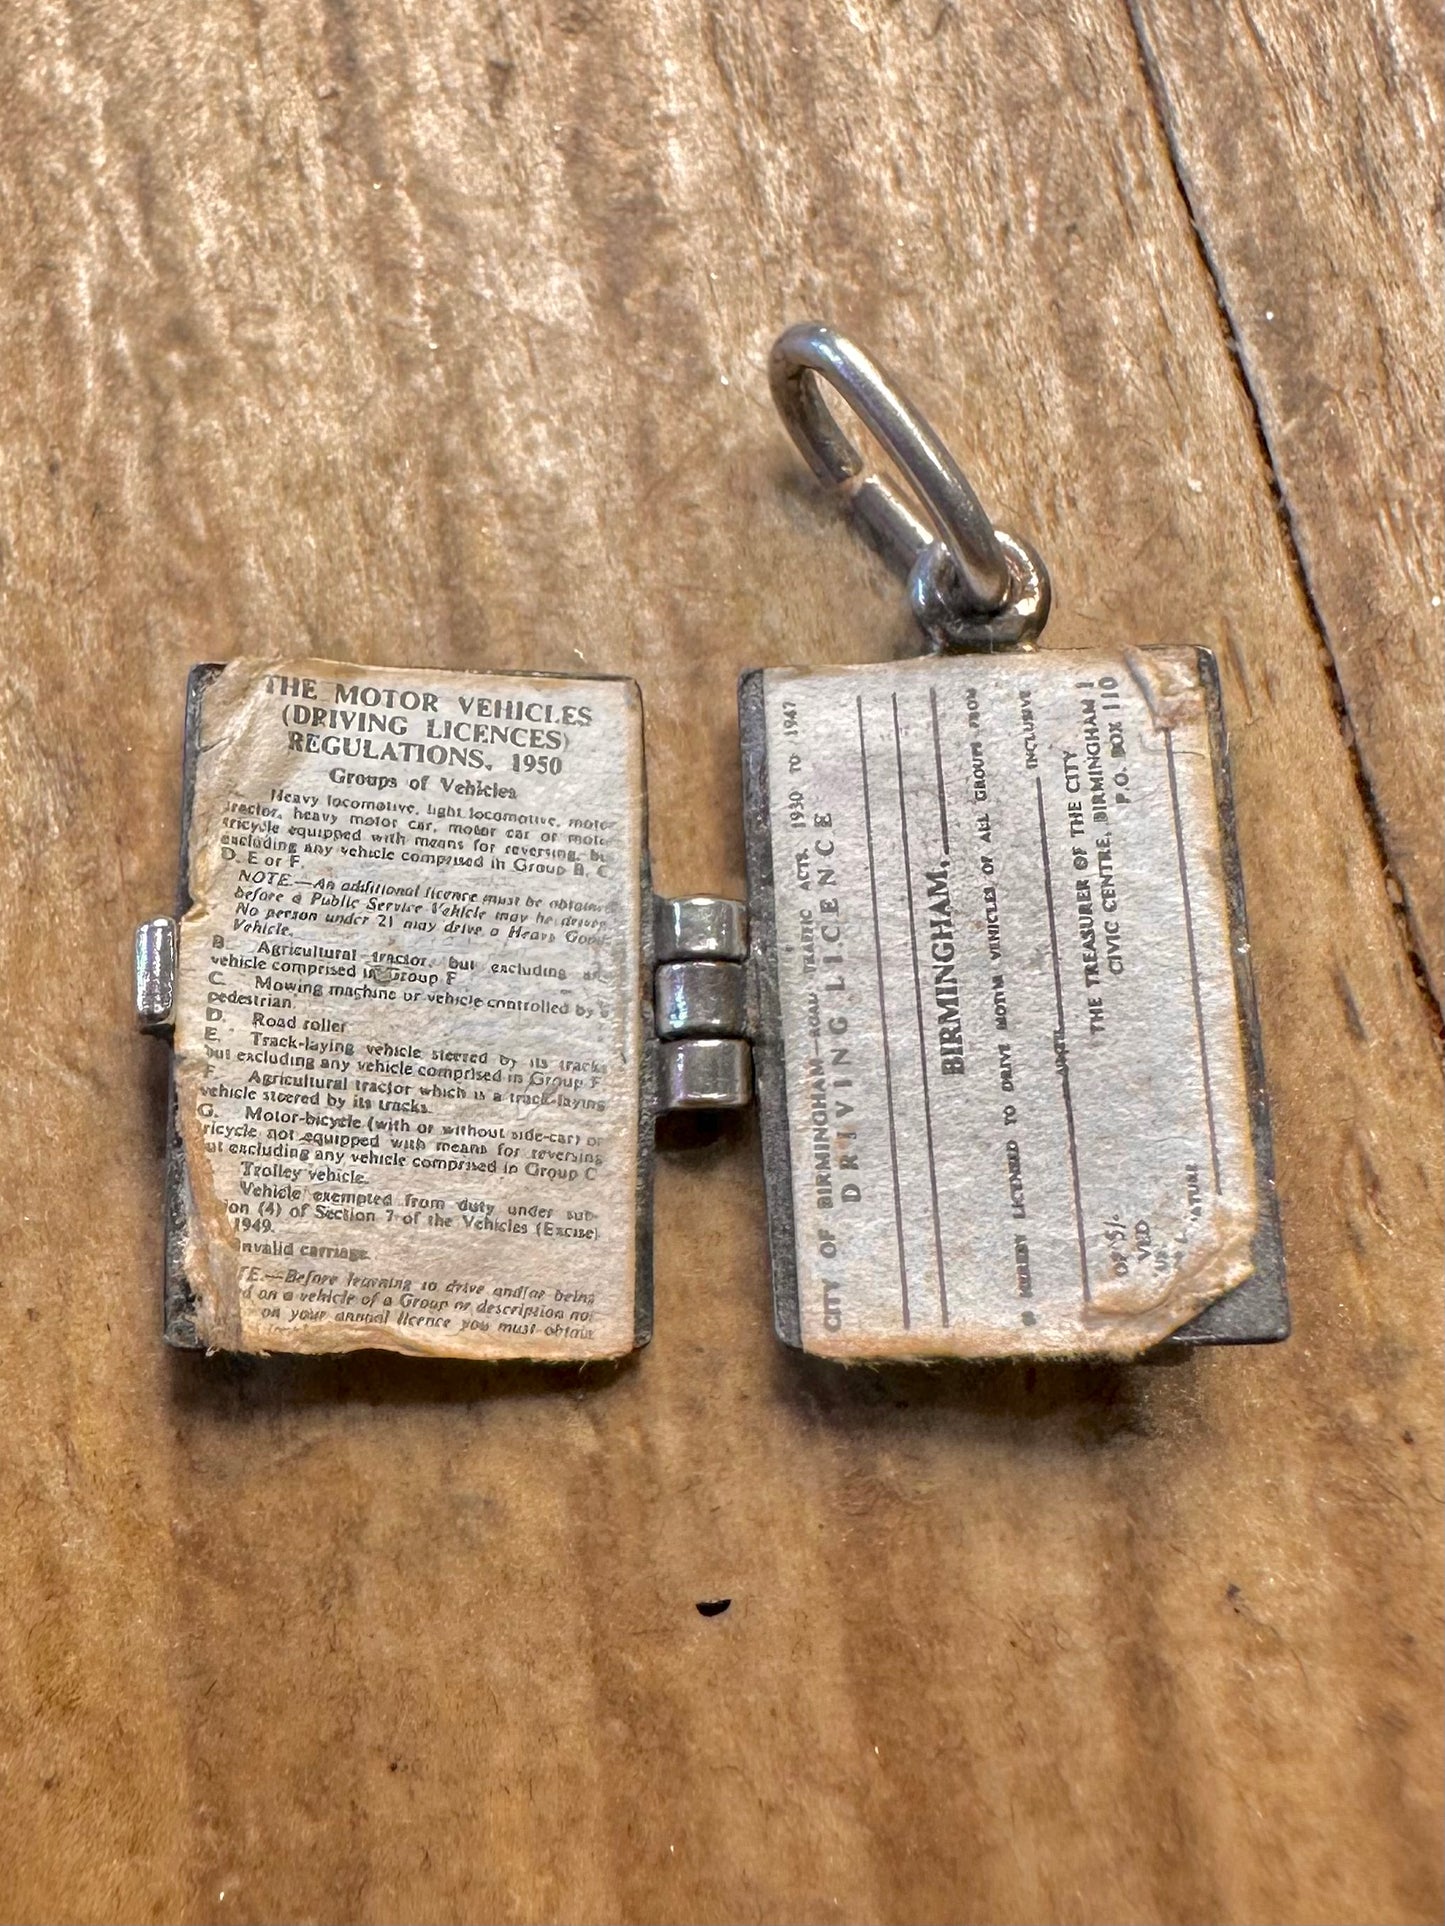 THE MOTOR VEHICLES
(DRIVING LICENCES)
REGULATIONS, 1950
Groups of Vehicles
Heavy locomotive, light locomotive, motor
tractor, heavy motor car, motor car or motor
tricycle equipped with means for reversing, bu
excluding any vehicle comprised in Group B, C
D, E or F.
NOTE.—An additional licence must be obtained
before a Public Service Vehicle may be driven
No person under 21 may drive a Heavy Goods
Vehicle.
B. Agricultural tractor, but excluding any
vehicle comprised in Group F
C. Mowing machine or vehicle controlled by
pedestrian
D. Road roller
E. Track-laying vehicle steered by its tracks
but excluding any vehicle comprised in Group F
F. Agricultural tractor which is a track-laying
vehicle steered by its tracks.
G. Motor-bicycle (with or without side-car) or
ricycle not equipped with means for reversing
ut excluding any vehicle comprised in Group C
Trolley vehicle.
Vehicle exempted from duty under sub-
ion (4) of Section 7 of the Vehicles (Excise)
1949.
Invalid carriage.
TE.—Before learning to drive and/or being
d on a vehicle of a Group or description not
on your annual licence you must obtain
CITY OF BIRMINGHAM—ROAD TRAFFIC ACTS, 1930 TO 1947
DRIVING LICENCE
BIRMINGHAM,
HEREBY LICENSED TO DRIVE MOTOR VEHICLES OF ALL GROUPS FROM
UNTIL INCLUSIVE
THE TREASURER OF THE CITY
CIVIC CENTRE, BIRMINGHAM 1
P.O. BOX 110
OF 5/-
VED
ATURE